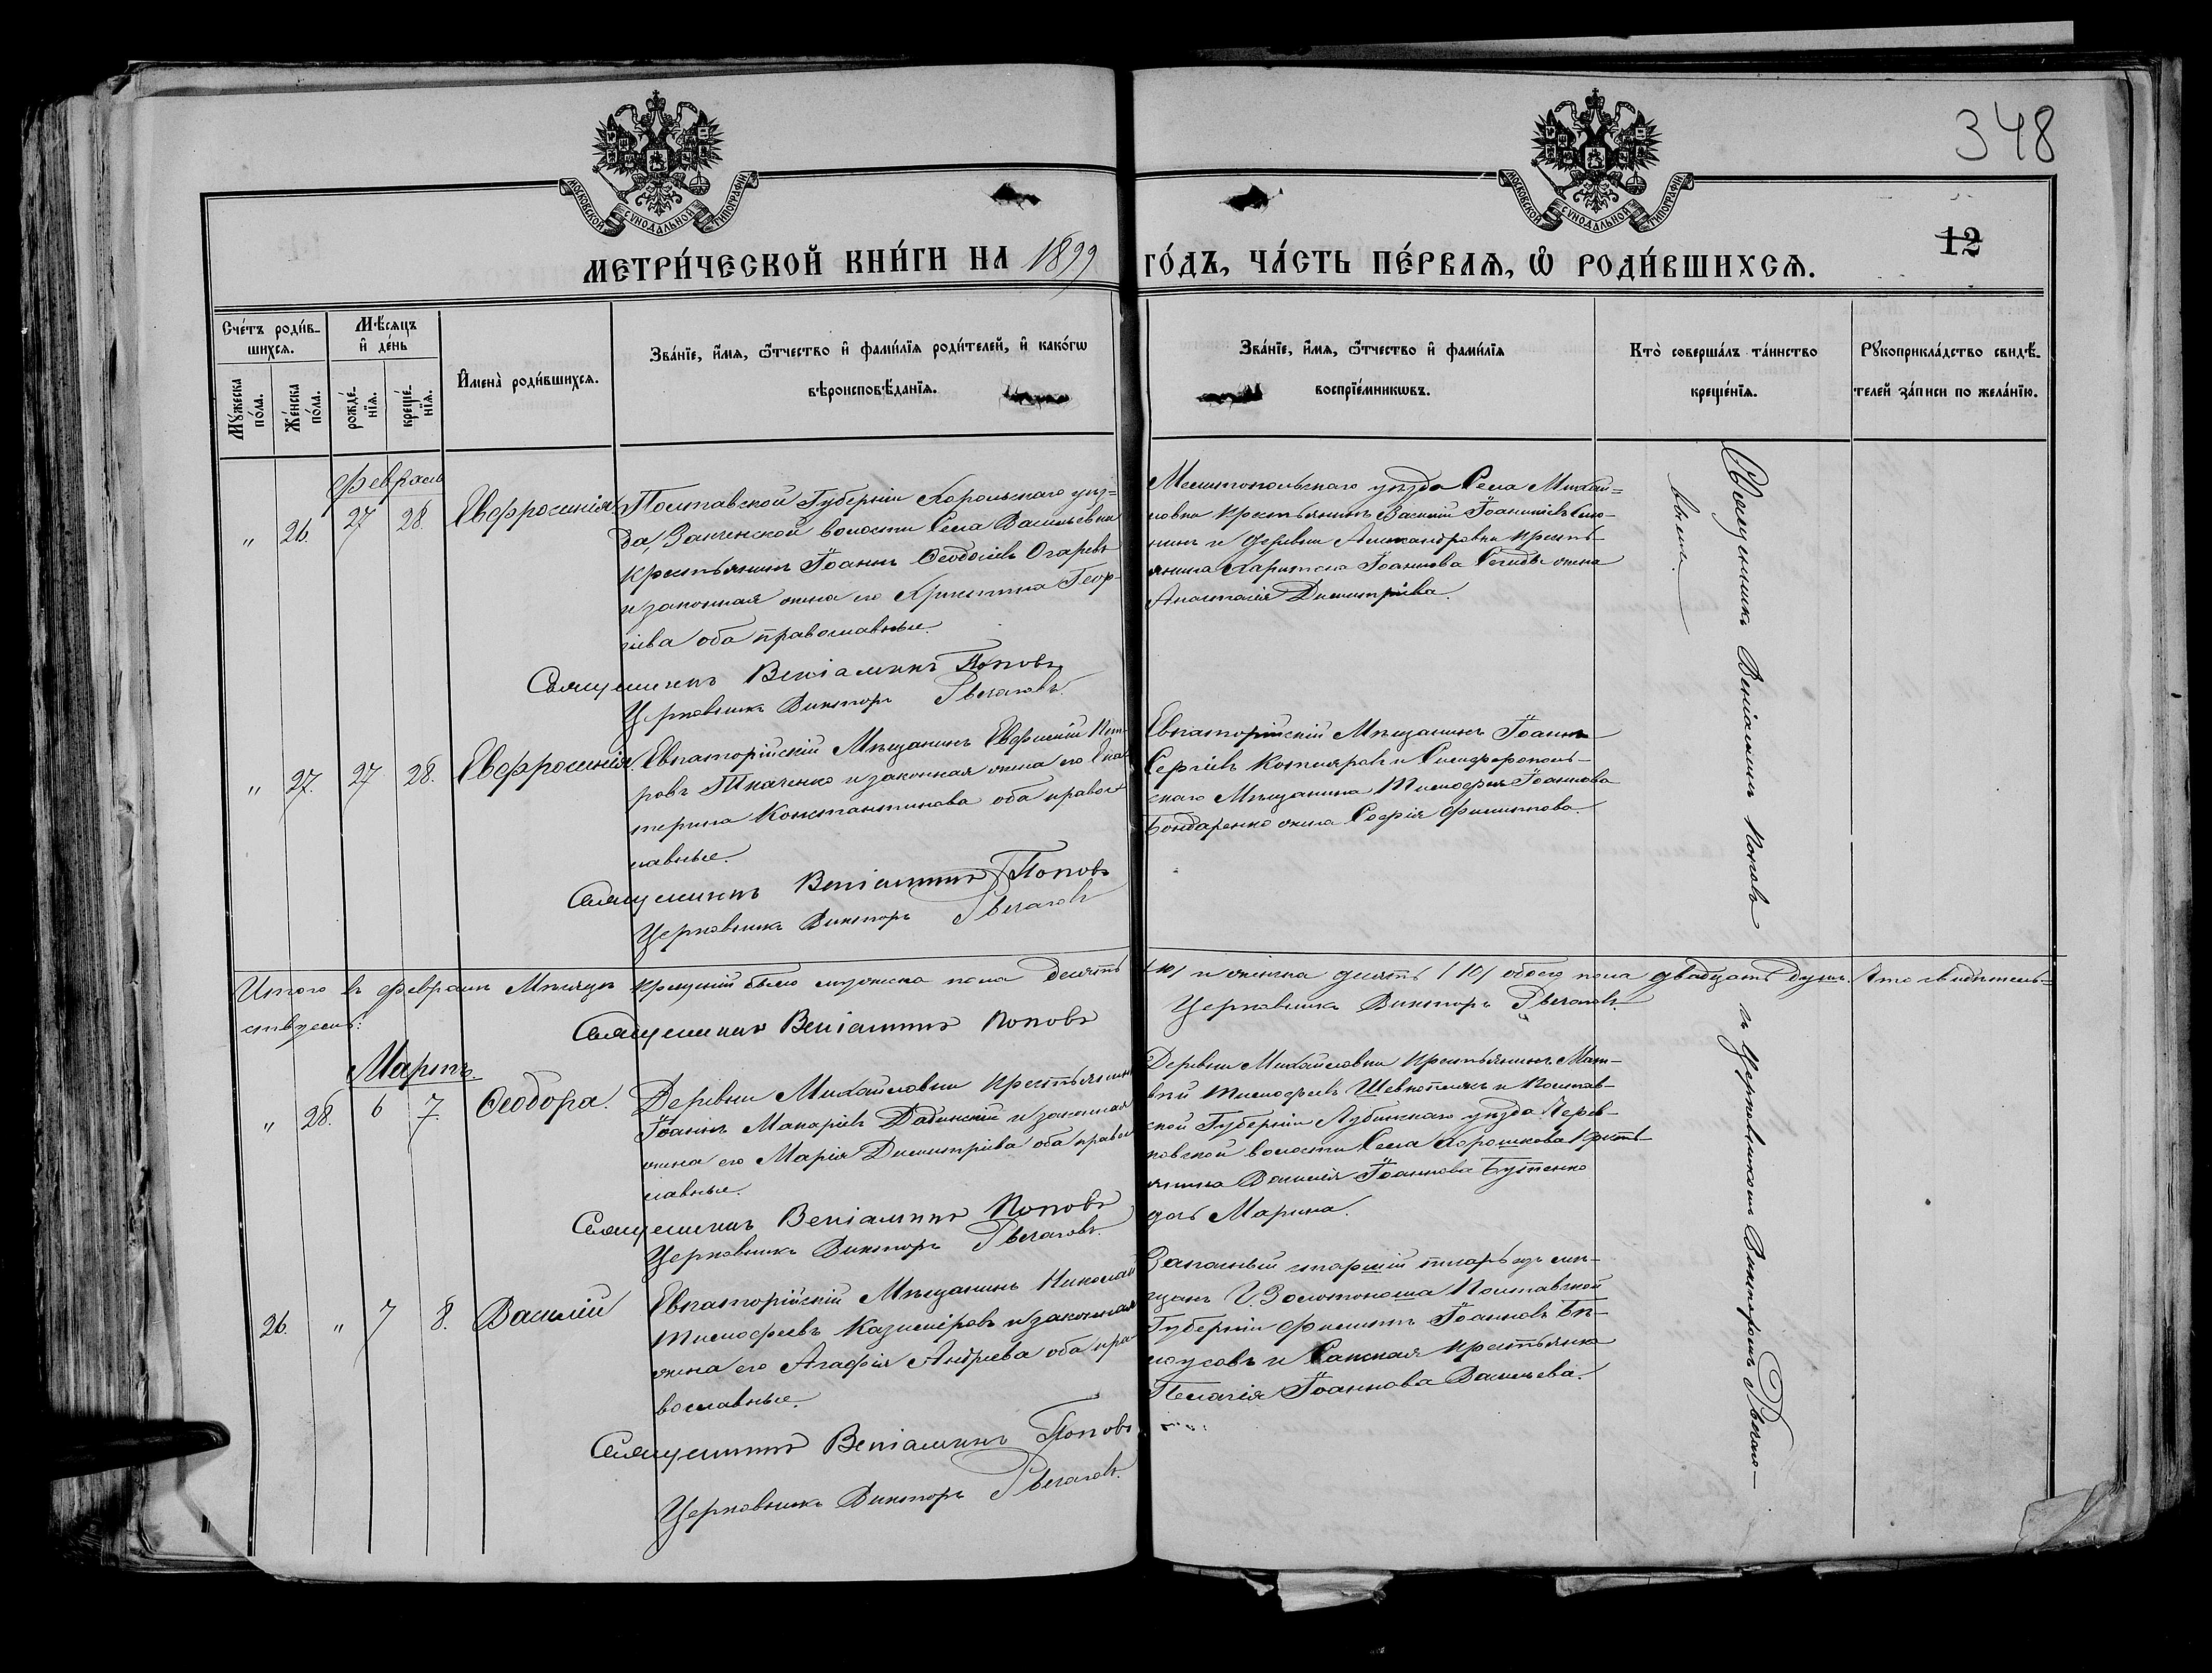 348
МОСКОВСКОЙ СѴНОДАЛЬНОЙ ТИПОГРАФІИ
МОСКОВСКОЙ СѴНОДАЛЬНОЙ ТИПОГРАФІИ
12
МЕТРИ́ЧЕСКОЙ КНИ́ГИ НА 1899 ГО́ДЪ, ЧА́СТЬ ПЕ́РВАѦ, Ѽ РОДИ́ВШИХСѦ.
Сче́тъ роди́в-
шихсѧ.
Мꙋ́жеска
по́ла.
Же́нска
по́ла.
Мѣ́сѧцъ
и҆ де́нь
рожде́-
нїѧ.
креще́-
нїѧ.
И҆мена̀ роди́вшихсѧ.
Зва́нїе, и҆́мѧ, ѻ҆́тчество и҆ фами́лїѧ роди́телей, и҆ како́гѡ
вѣроисповѣ́данїѧ.
Зва́нїе, и҆́мѧ, ѻ҆́тчество и҆ фами́лїѧ
воспрїе́мникѡвъ.
Кто̀ соверша́лъ та́инство
креще́нїѧ.
Рꙋкоприкла́дство свидѣ́-
телей за́писи по жела́нїю.
Февраль
" 26. 27 28. Евфросинія
Полтавской Губерніи Хорольскаго уѣз=
да, волости Села Васильевки
крестьянинъ Іоаннъ Ѳеодосіевъ Огаревъ
и законная жена его Христина Геор-
гіева оба православные.
Священникъ Веніаминъ Поповъ
Церковникъ Викторъ
Мелитопольскаго уѣзда Села Михай=
ловки крестьянинъ Василій Іоанніевъ
и деревни Александровки кресть-
янина Харитона Іоаннова жена
Анастасія Димитріева.
Священникъ Веніаминъ Поповъ и Церковникомъ Викторомъ
" 27. 27 28. Евфросинія.
Евпаторійскій Мѣщанинъ Евфимій Пет-
ровъ Ткаченко и законная жена его Ека-
терина Константинова оба правос-
лавные.
Священникъ Веніаминъ Поповъ
Церковникъ Викторъ
Евпаторійскій Мѣщанинъ Іоаннъ
Сергіевъ Котляровъ и Симферополь-
скаго Мѣщанина Тимофея Іоаннова
Бондаренко жена Софія Филиппова.
Итого въ Февралѣ Мѣсяцѣ крещеній было мужска пола десять (10) и женска десять (10) обоего пола двадцать душъ. Что свидѣтель=
ствуемъ:
Священникъ Веніаминъ Поповъ
Церковникъ Викторъ
Мартъ.
" 28. 6 7. Ѳеодора.
Деревни Михайловки Крестьянинъ
Іоаннъ Макаріевъ и законная
жена его Марія Димитріева оба правос-
лавные.
Священникъ Веніаминъ Поповъ
Церковникъ Викторъ
Деревни Михайловки Крестьянинъ Мат-
вѣй Тимофеевъ и Полтав-
ской Губерніи Лубенскаго уѣзда
волости Села кресть-
янина Василія Іоаннова Бутенко
дочь Марина.
26. " 7 8. Василій
Евпаторійскій Мѣщанинъ Николай
Тимофеевъ Казиміровъ и законная
жена его Агафія Андреева оба пра-
вославные.
Священникъ Веніаминъ Поповъ
Церковникъ Викторъ
Запасный старшій писарь изъ мѣ-
щанъ Г. Золотоноша Полтавской
Губерніи Филиппъ Іоанновъ Бѣ-
лоусовъ и Сакская крестьянка
Пелагія Іоаннова Васильева.